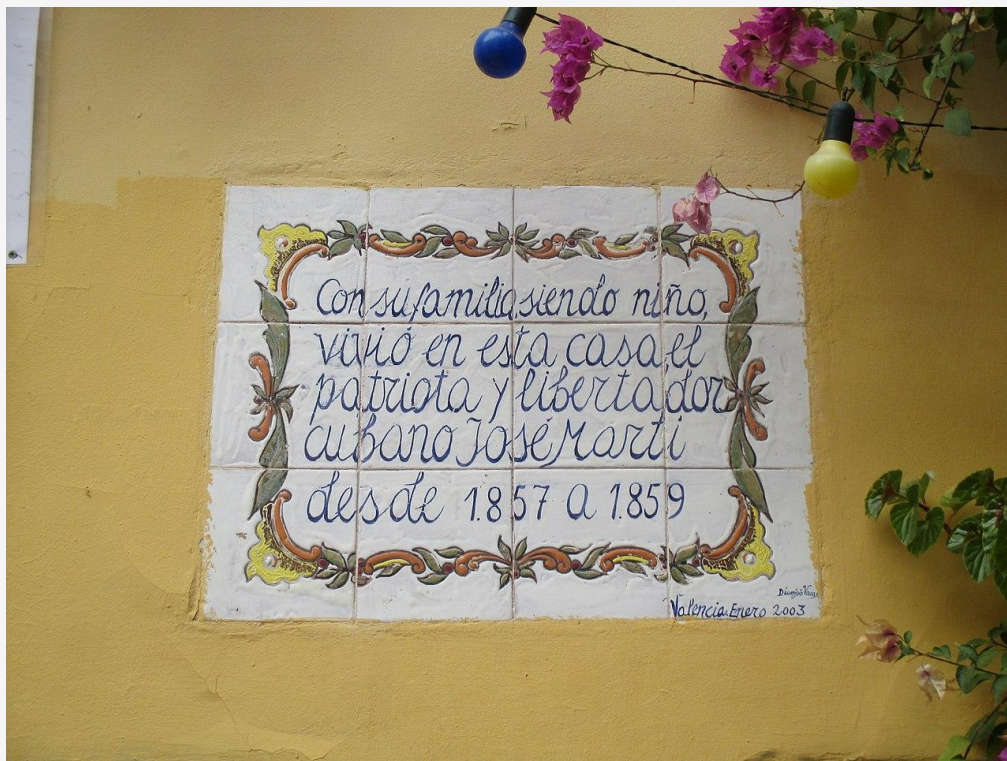 Con su familia siendo niño,
vivió en esta casa el
patriota y libertador
cubano José Martí
desde 1.857 a 1.859
Valencia. Enero 2003